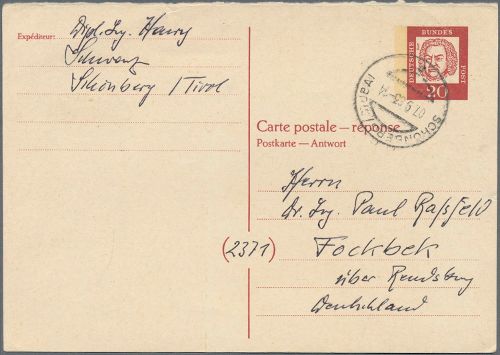 Expéditeur: Dipl. Ing. Henry
Schwarz
Schönberg / Tirol
DEUTSCHE BUNDES POST
20
Carte postale — réponse
Postkarte — Antwort
Herrn
Dr. Ing. Paul Raßfeld
(2371) Fockbek
über Rendsburg
Deutschland